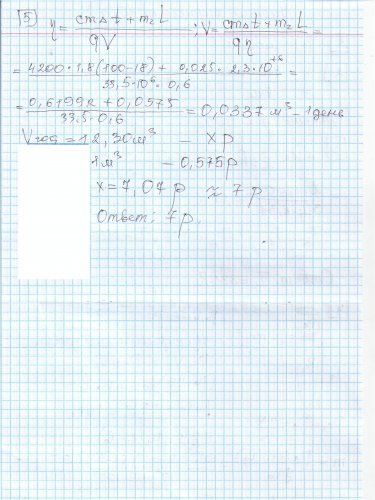 5) η = (cmΔt + m₂L) / qV ; V = (cmΔt + m₂L) / qη =
= (4200·1,8(100-18) + 0,025·2,3·10⁺⁶) / (33,5·10⁶·0,6) =
= (0,61992 + 0,0575) / (33,5·0,6) = 0,0337 м³ - 1 день
V год = 12,30 м³ - x р
1 м³ - 0,575 р
x = 7,07 р ≈ 7 р
Ответ: 7 р.